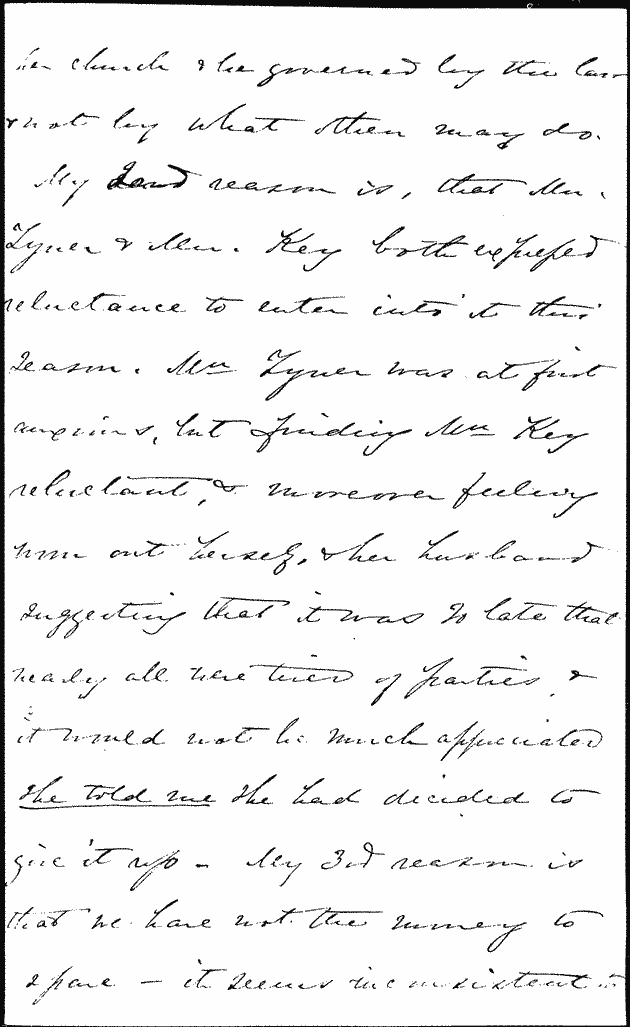 her church & be governed by the law
& not by what others may do.
My 2nd reason is, that Mrs.
Tyner & Mrs. Key both expressed
reluctance to enter into it this
season. Mrs Tyner was at first
anxious, but finding Mrs Key
reluctant, & moreover feeling
worn out herself, & her husband
suggesting that it was so late that
nearly all were tired of parties, &
it would not be much appreciated
she told me she had decided to
give it up – My 3rd reason is
that we have not the money to
spare – it seems inconsistent to